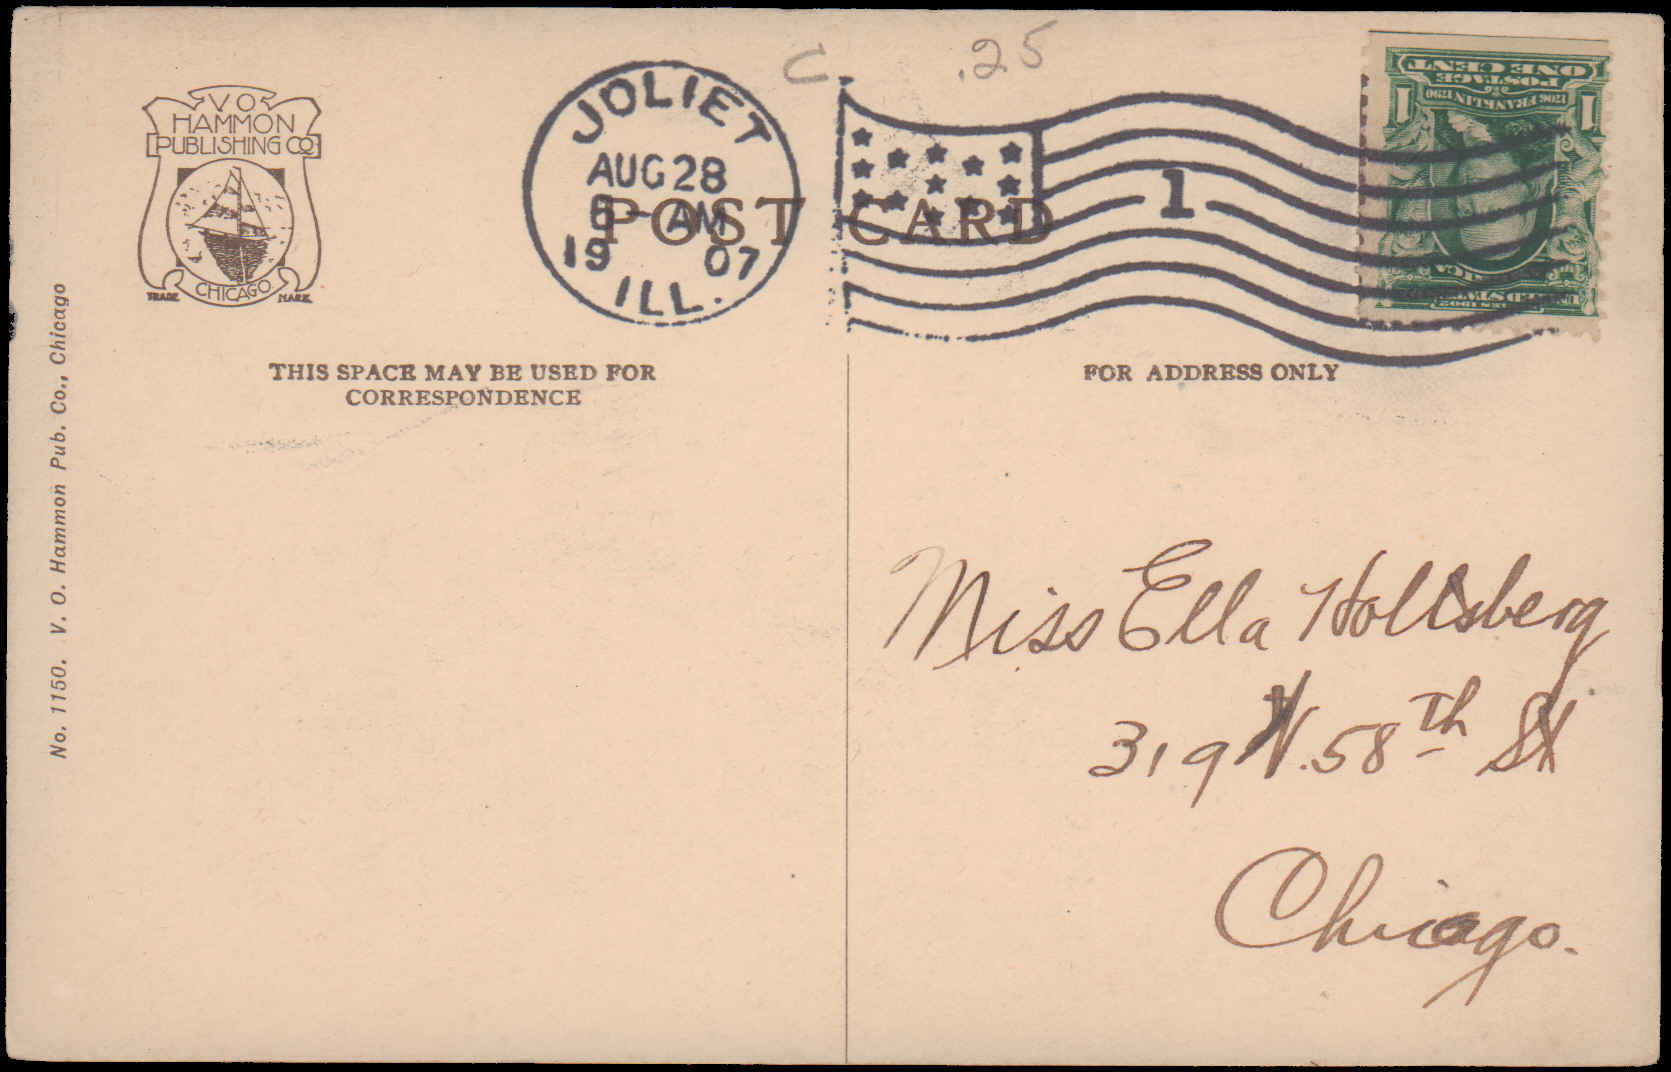 C .25
V O
HAMMON
PUBLISHING CO
CHICAGO
TRADE MARK
JOLIET
AUG 28
6 - AM
19 07
ILL.
1
POST CARD
ONE CENT
POSTAGE
1706 FRANKLIN 1790
1 1
THIS SPACE MAY BE USED FOR
CORRESPONDENCE
FOR ADDRESS ONLY
No. 1150. V. O. Hammon Pub. Co., Chicago
Miss Ella
319 W. 58th St
Chicago.